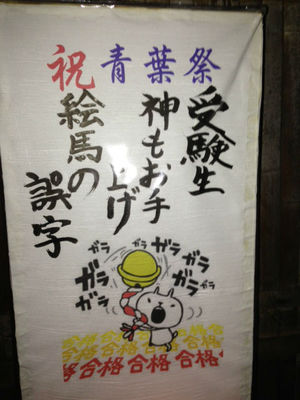 祝青葉祭
受験生
神もお手
上げ
絵馬の
誤字
ガラ
ガラ
ガラ
ガラ
ガラ
ガラ
ガラ
合格 合格 合格
合格 合格 合格